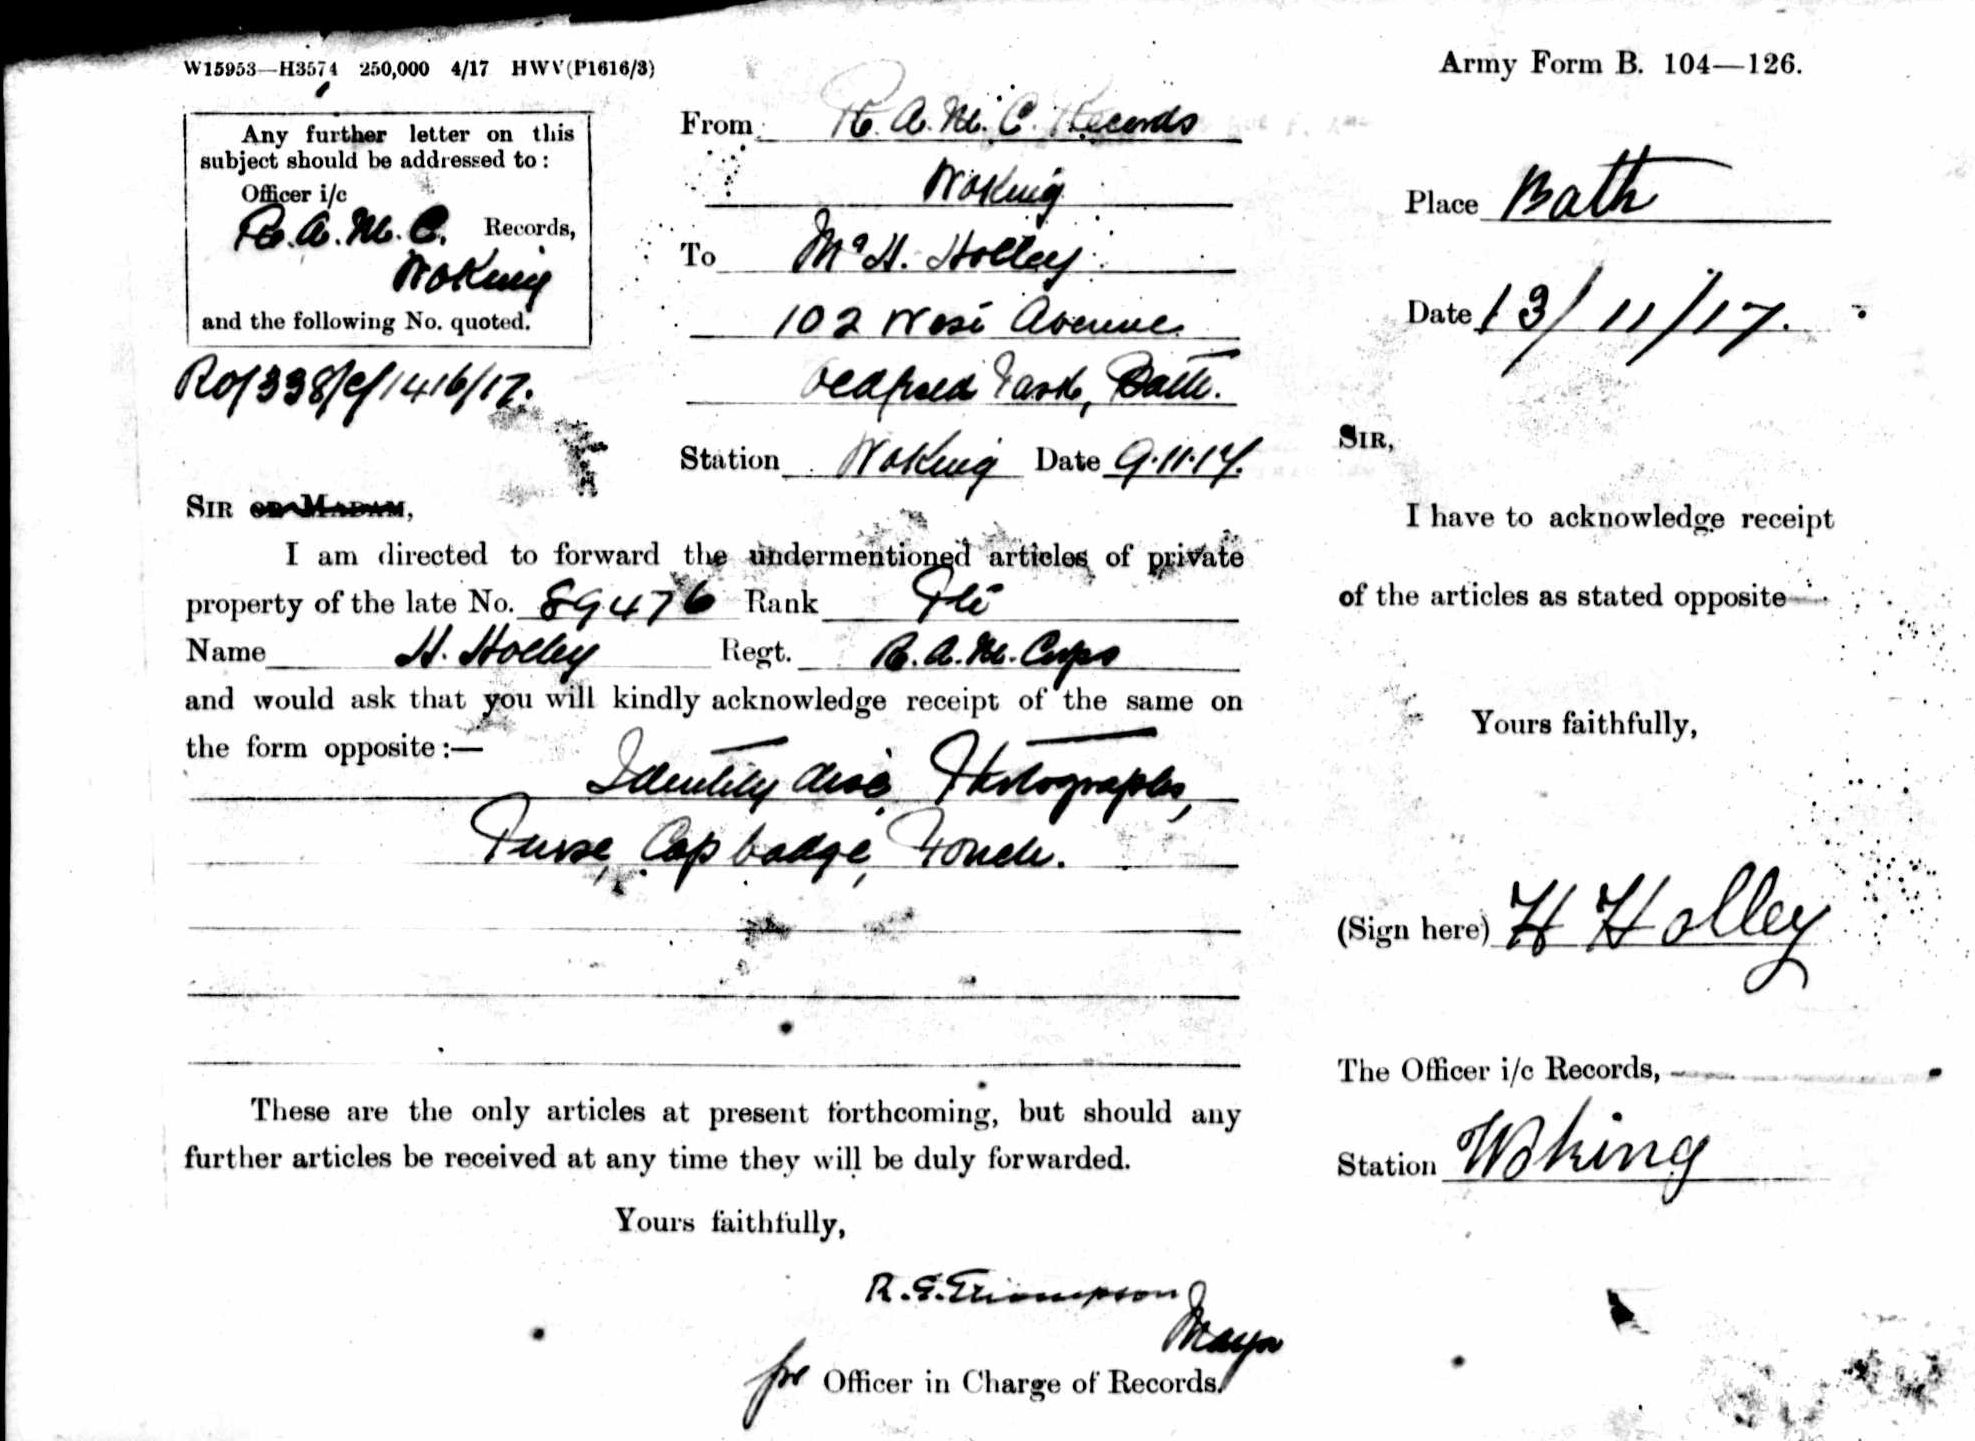 W15953—H3574 250,000 4/17 HWV(P1616/3)
Army Form B. 104—126.
Any further letter on this
subject should be addressed to:
Officer i/c
R.A.M.C. Records,
Woking
and the following No. quoted.
RO/338/E/1416/17.
From R.A.M.C. Records
Woking
To Mr H. Holley
102 West Avenue
Oldfield Park, Bath.
Station Woking Date 9.11.17.
SIR OR MADAM,
I am directed to forward the undermentioned articles of private
property of the late No. 89476 Rank Pte
Name H. Holley Regt. R.A.M. Corps
and would ask that you will kindly acknowledge receipt of the same on
the form opposite:—
Identity disc, Photographs,
Purse, Cap badge, Pouch.
These are the only articles at present forthcoming, but should any
further articles be received at any time they will be duly forwarded.
Yours faithfully,
R. E. Thompson
Major
for Officer in Charge of Records.
Place Bath
Date 13/11/17.
SIR,
I have to acknowledge receipt
of the articles as stated opposite
Yours faithfully,
(Sign here) H Holley
The Officer i/c Records,
Station Woking